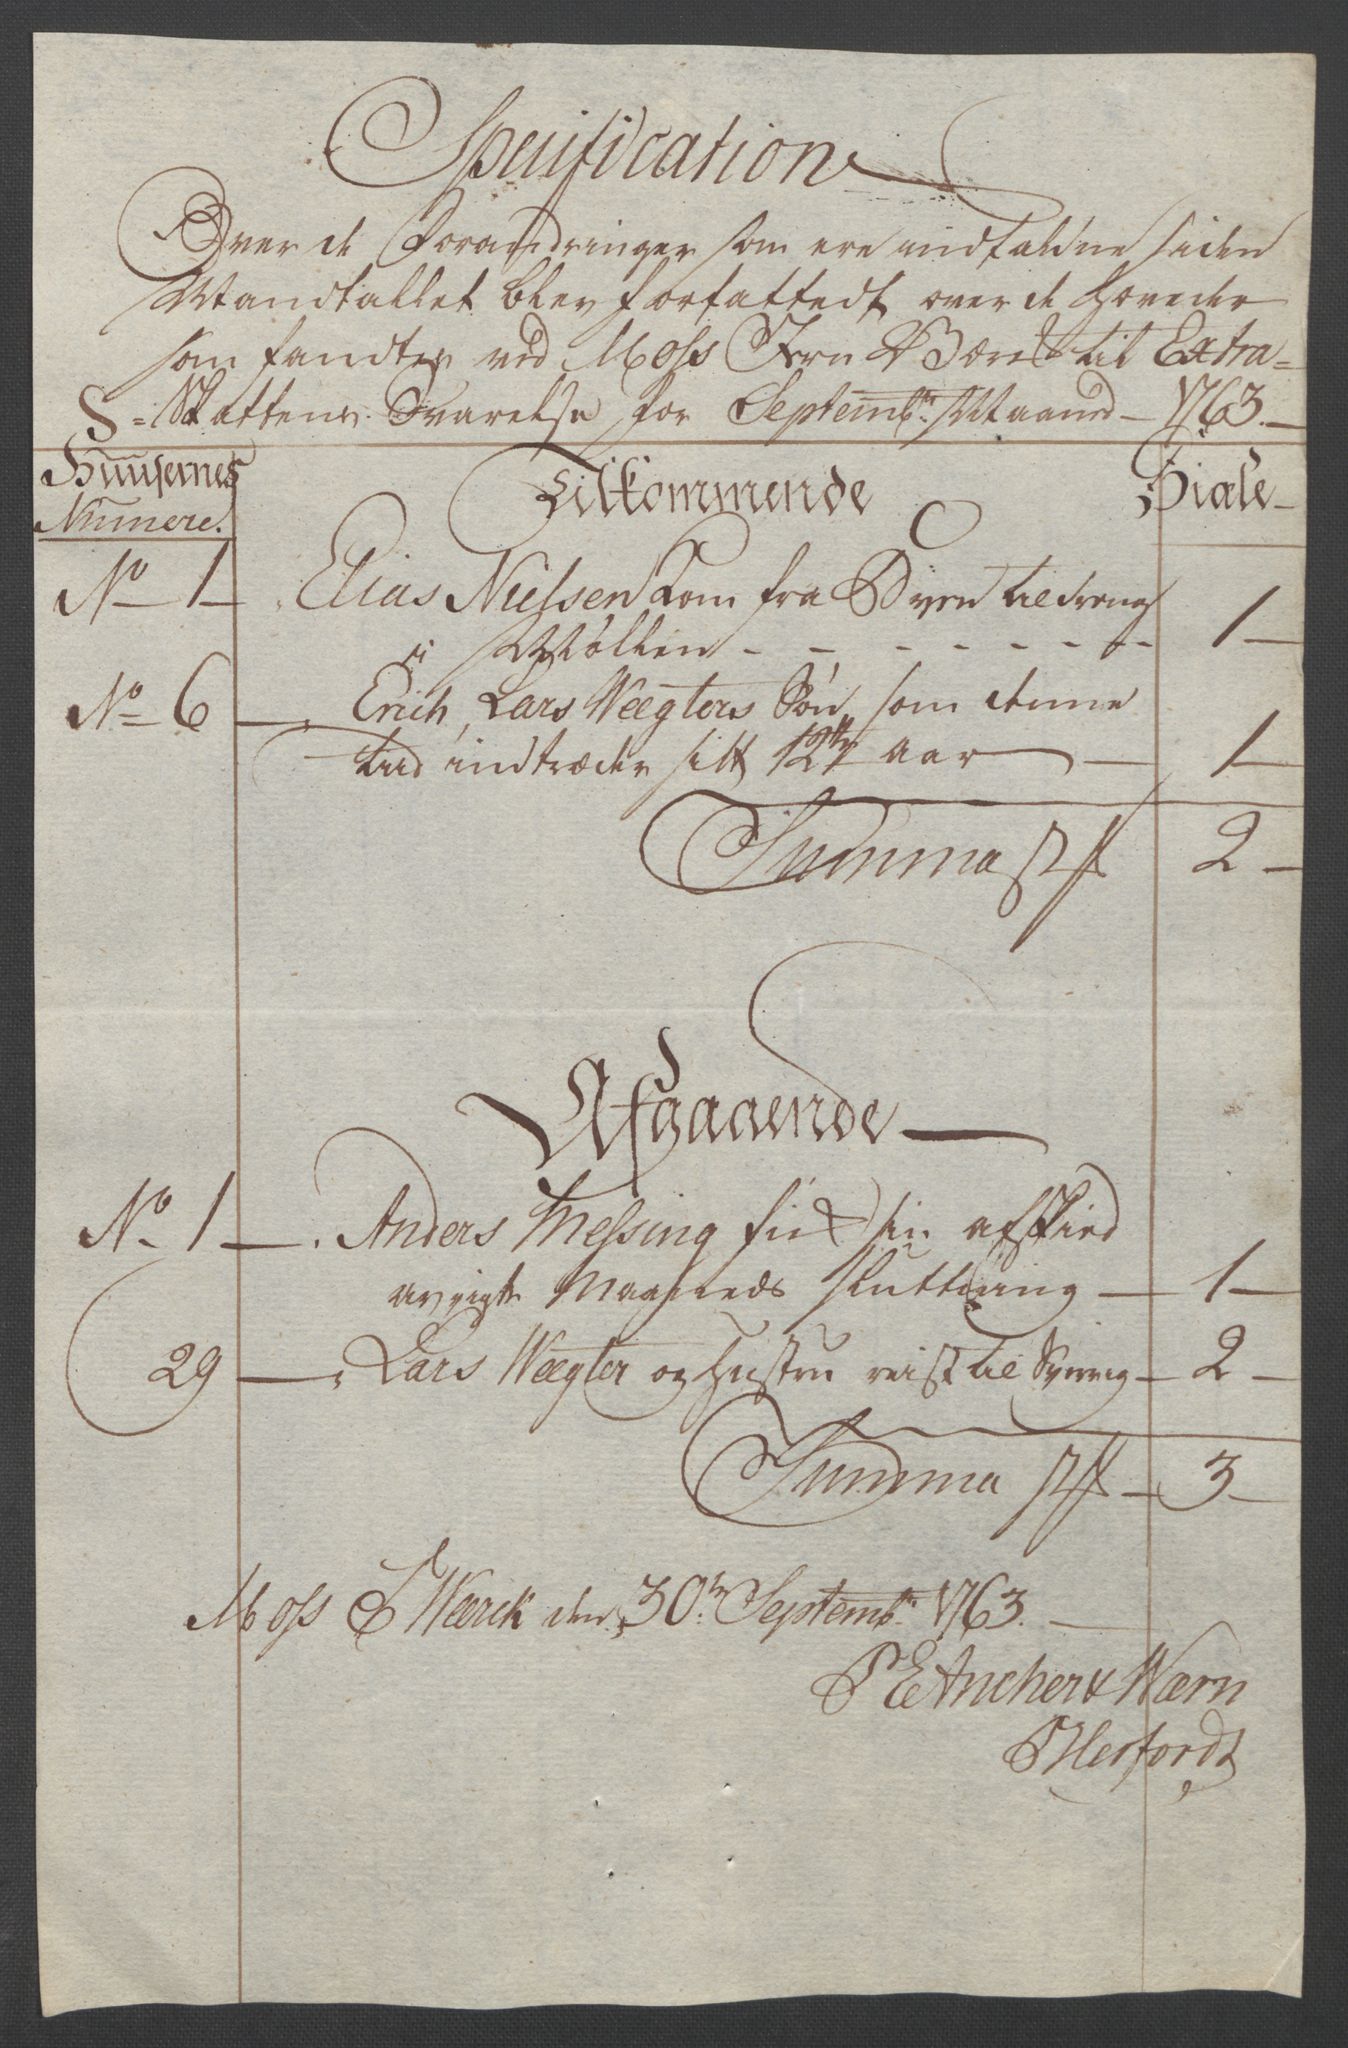 Specification
Over de Forandringer som ere indfaldne siden
Mandtallet blev forfattedt over de Hoveder
som fandtes ved Moss Jern Værck til Extra=
Skattens Svarelse for Septembr. Maaned 1763.
Huusernes
Numere.
Tilkommende
Siæle
No 1 Elias Nielsen kom fra Byen til dreng
i Møllen - - - - - - - 1
No 6 Erich, Lars Wægters Søn, som denne
tiid indtræder sitt 12te aar 1
Summa 2
Afgaaende
No. 1 Anders Messing fik sin afskied
avigte Maaneds slutning 1
29 Lars Wægter og Hustru reist til Sverrig 2
Summa 3
Moss J Wærck den 30te Septembr. 1763.
P E Ancher & Wærn
P Herfordt